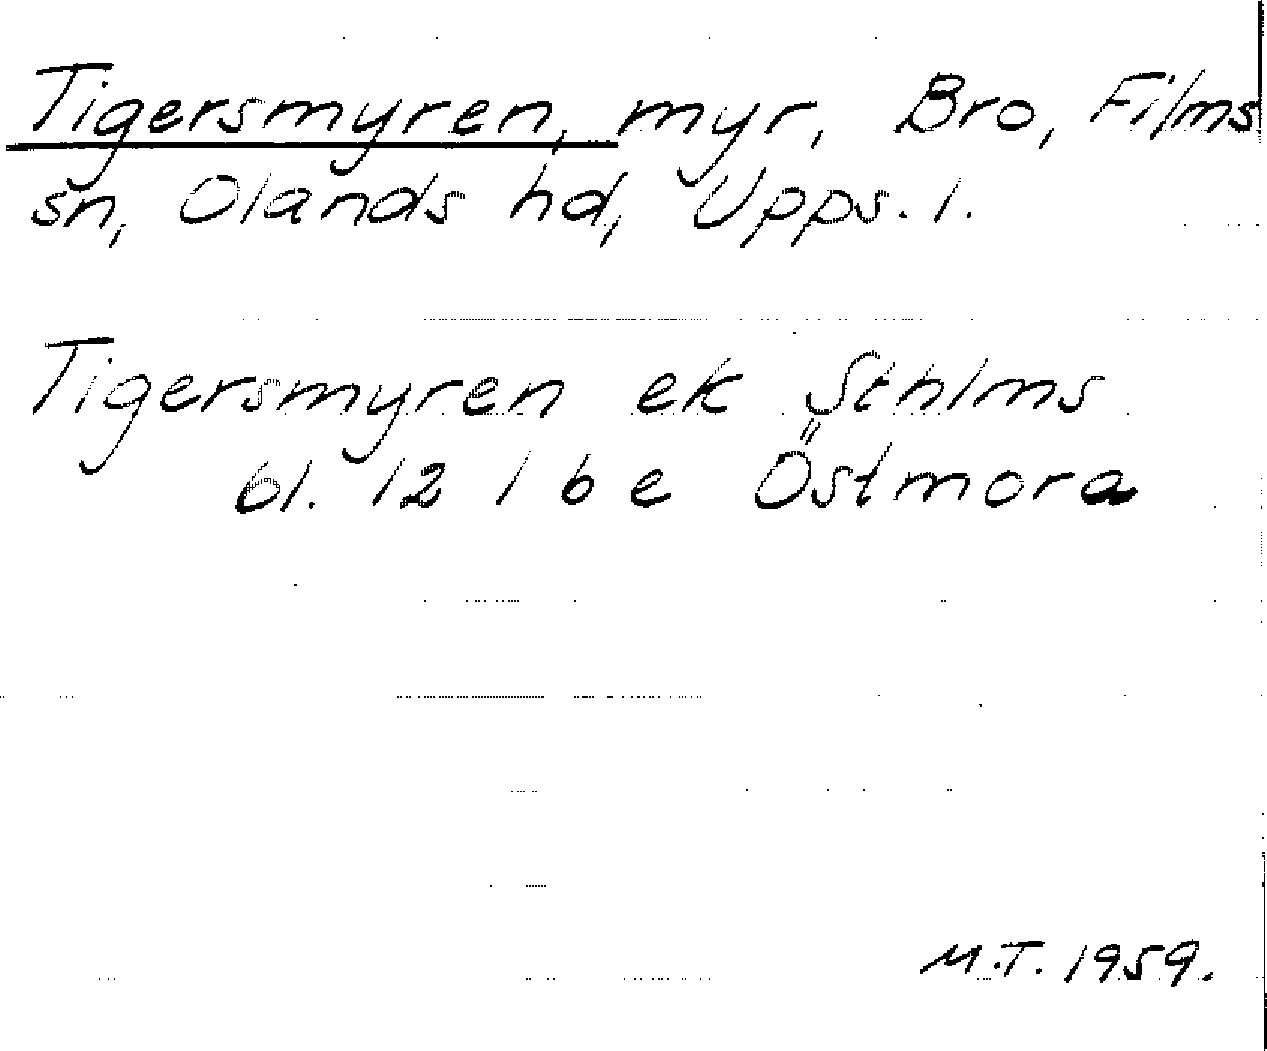 Tigersmyren, myr, Bro, Films
sn, Olands hd, Upps. l.
Tigersmyren ek Sthlms
bl. 12 1 b e Östmora
M.T. 1959.